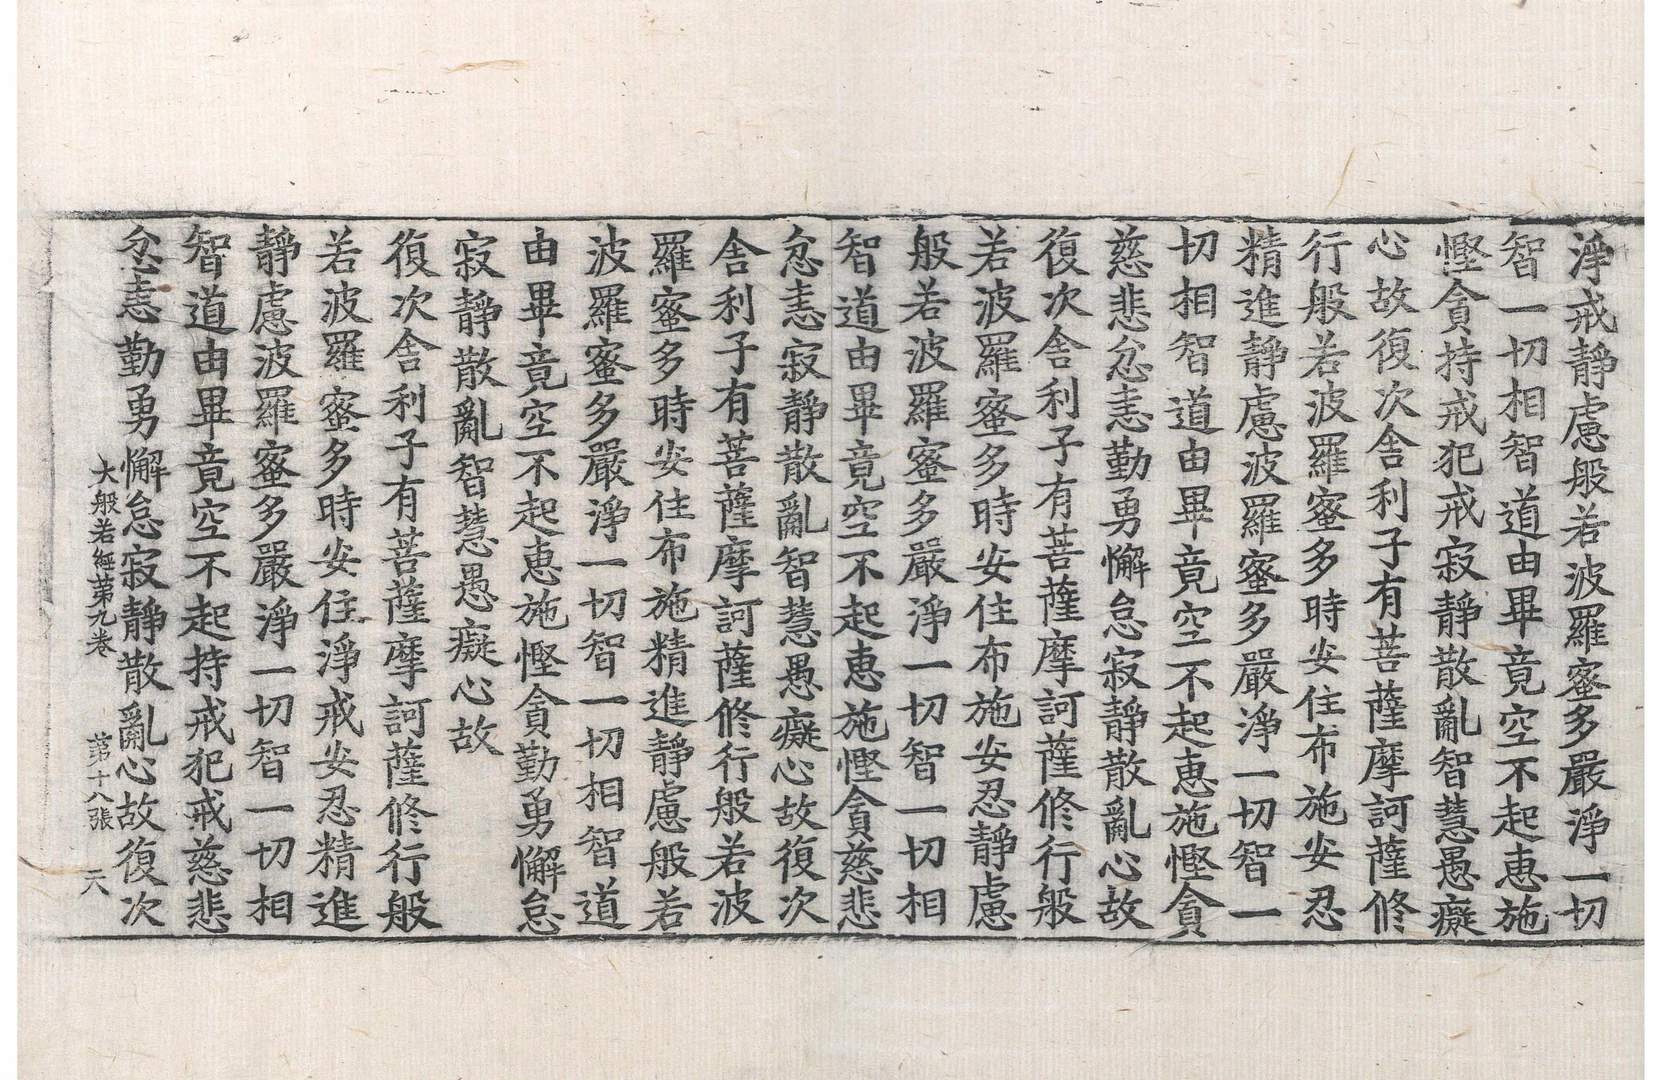 淨戒靜慮般若波羅蜜多嚴淨一切
智一切相智道由畢竟空不起惠施
慳貪持戒犯戒寂靜散亂智慧愚癡
心故復次舍利子有菩薩摩訶薩修
行般若波羅蜜多時安住布施安忍
精進靜慮波羅蜜多嚴淨一切智一
切相智道由畢竟空不起惠施慳貪
慈悲忿恚勤勇懈怠寂靜散亂心故
復次舍利子有菩薩摩訶薩修行般
若波羅蜜多時安住布施安忍靜慮
般若波羅蜜多嚴淨一切智一切相
智道由畢竟空不起惠施慳貪慈悲
忿恚寂靜散亂智慧愚癡心故復次
舍利子有菩薩摩訶薩修行般若波
羅蜜多時安住布施精進靜慮般若
波羅蜜多嚴淨一切智一切相智道
由畢竟空不起惠施慳貪勤勇懈怠
寂靜散亂智慧愚癡心故
復次舍利子有菩薩摩訶薩修行般
若波羅蜜多時安住淨戒安忍精進
靜慮波羅蜜多嚴淨一切智一切相
智道由畢竟空不起持戒犯戒慈悲
忿恚勤勇懈怠寂靜散亂心故復次
大般若經第九卷 第十八張